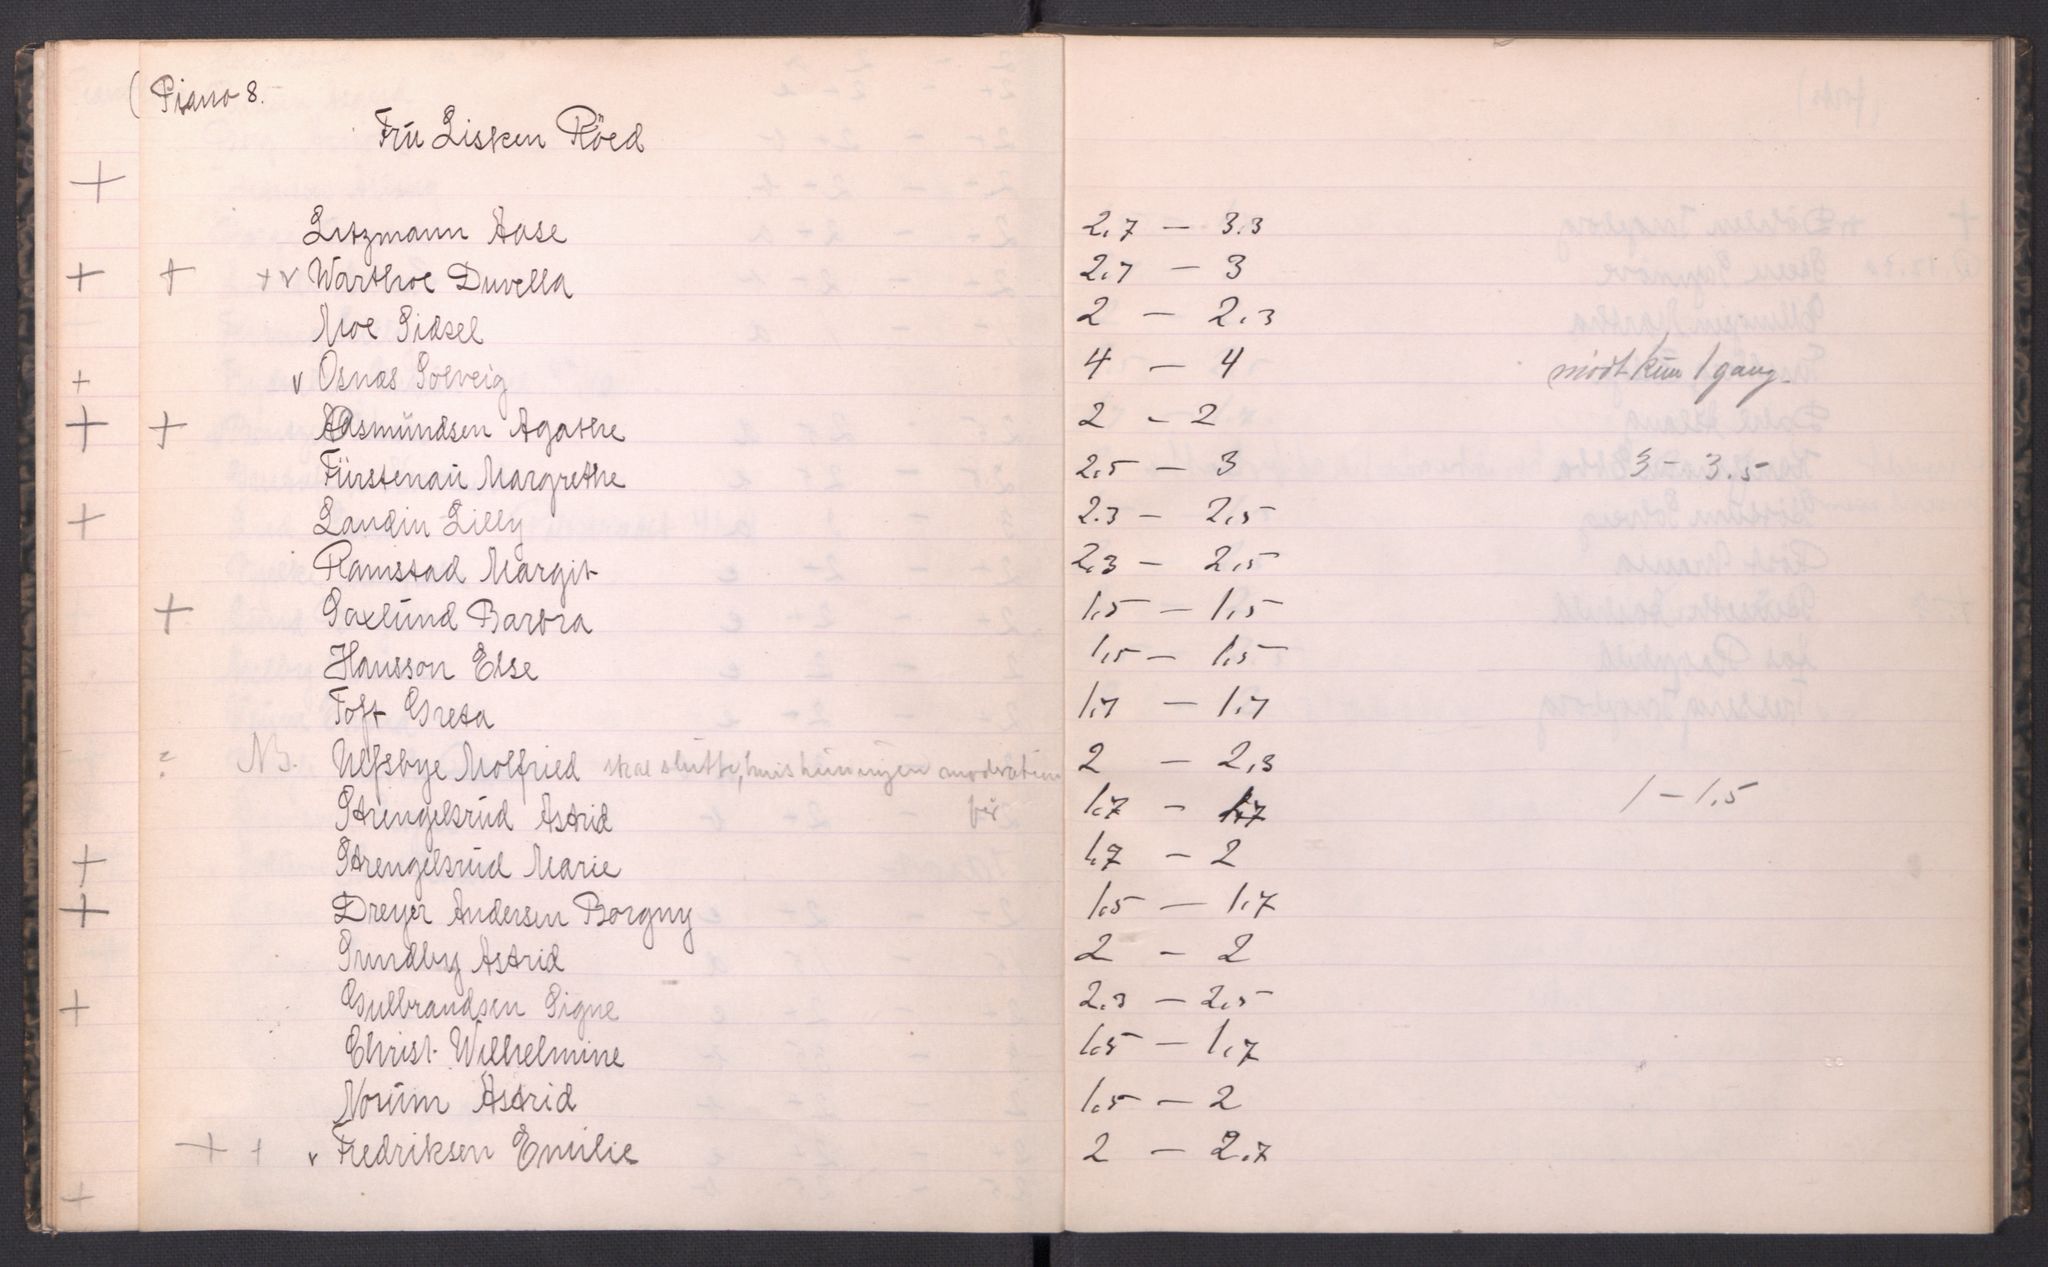 ( Piano 8.
Frü Lisken Röed
+
Litzmann Aase 2,7 — 3.3
+ + + v Warthoe Duvella 2,7 — 3
Moe Sidsel 2 — 2,3
+ v Osnæs Solveig 4 — 4 mödt kün 1 gang.
+ + Aasmündsen Agathe 2 - 2
Fürstenaü Margrethe 2,5 — 3 3 — 3.5
+ Landin Lilly 2.3 — 2,5
Ramstad Margit 2,3 — 2,5
+ Saxlünd Barbra 1,5 — 1,5
Hansson Else 1,5 — 1,5
Toft Greta 1,7 — 1,7
? NB. Ulfsbye Molfried skal slütte, hvis hün ingen moderation 2 — 2,3
får
Strengelsrüd Astrid 1,7 — 1,7 1 — 1,5
+ Strengelsrüd Marie 1,7 — 2
+ Dreyer Andersen Borgny 1,5 — 1,7
Sundby Astrid 2 — 2
+ Gulbrandsen Signe 2.3 — 2,5
Christ. Wilhelmine 1,5 — 1,7
Norüm Astrid 1,5 — 2
+ + v Fredriksen Emilie 2 — 2.7
+